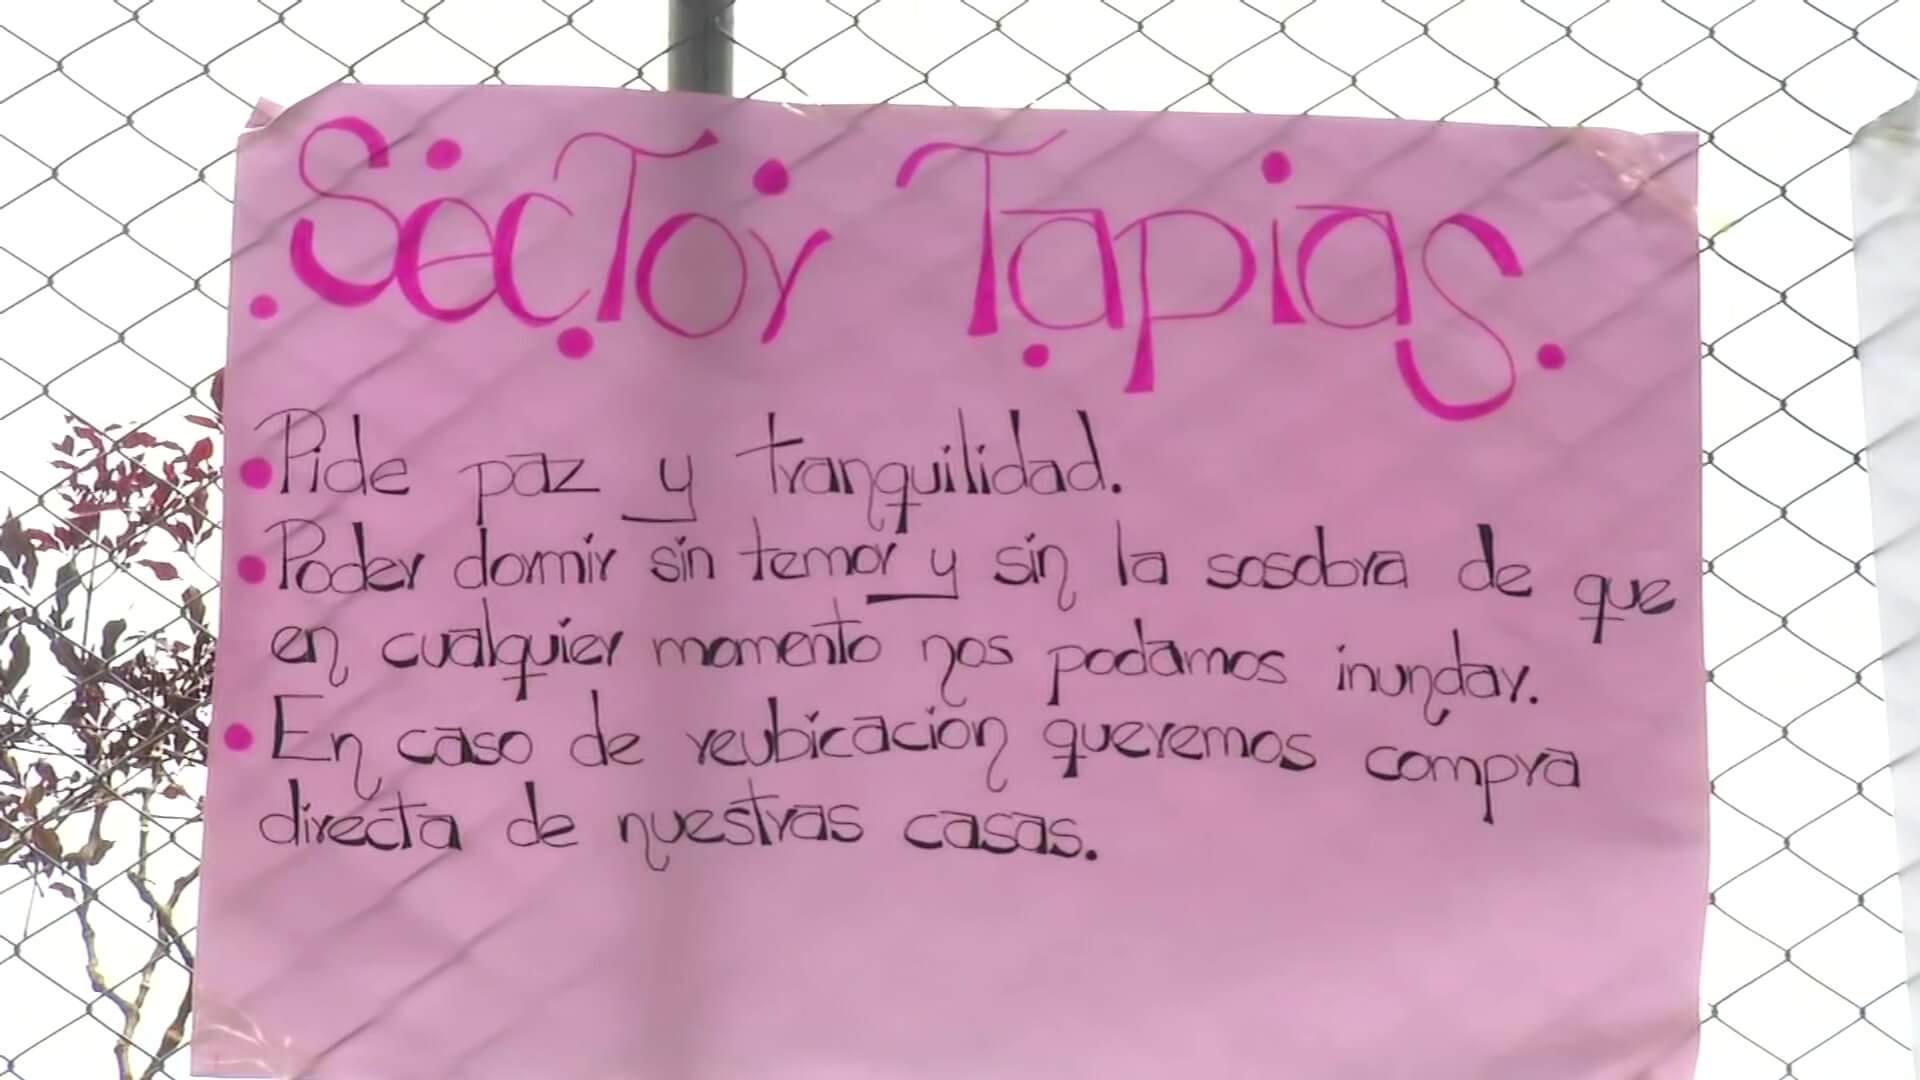 Sector Tapias
Pide paz y tranquilidad.
Poder dormir sin temor y sin la sosobra de que
en cualquier momento nos podamos inundar.
En caso de reubicación queremos compra
directa de nuestras casas.